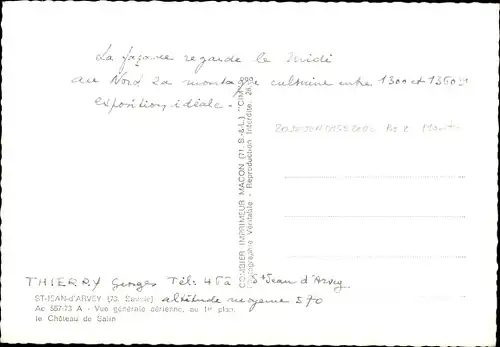 La façade regarde le Midi
au Nord la montagne culmine entre 1300 et 1360 m
exposition idéale.
COMBIER IMPRIMEUR MACON (71. S.-&-L.) "CIM"
Photographie Véritable - Reproduction Interdite
THIERRY Georges Tél: 45 à St Jean d'Arvey
ST-JEAN-d'ARVEY (73. Savoie) altitude moyenne 570
Ac 557-73 A - Vue générale aérienne, au 1er plan,
le Château de Salin